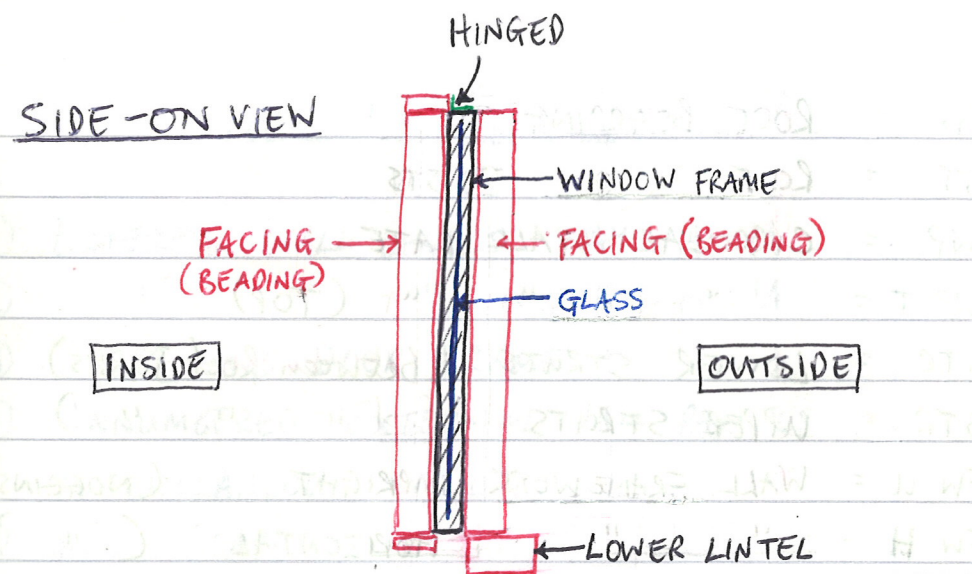 HINGED
SIDE-ON VIEW
WINDOW FRAME
FACING
(BEADING)
FACING (BEADING)
GLASS
INSIDE
OUTSIDE
LOWER LINTEL